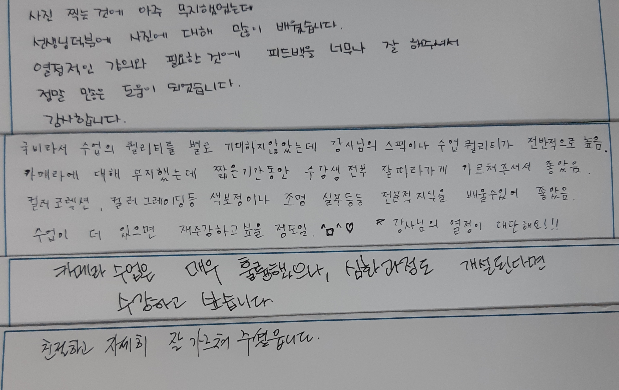 사진 찍는 것에 아주 무지했었는데
선생님덕분에 사진에 대해 많이 배웠습니다.
열정적인 강의와 필요한 것에 피드백을 너무나 잘 해주셔서
정말 많은 도움이 되었습니다.
감사합니다.
국비라서 수업의 퀄리티를 별로 기대하지않았는데 강사님의 스펙이나 수업 퀄리티가 전반적으로 높음.
카메라에 대해 무지했는데 짧은기간동안 수강생 전부 잘따라가게 가르쳐주셔서 좋았음.
컬러 코렉션, 컬러 그레이딩등 색보정이나 조명 실무등등 전문적 지식을 배울수있어 좋았음.
수업이 더 있으면 재수강하고 싶을 정도임 ^ㅁ^♡ * 강사님의 열정이 대단해요!!!
카메라 수업은 매우 훌륭했으나, 심화과정도 개설된다면
수강하고 싶습니다
친절하고 자세히 잘 가르쳐 주셨습니다.